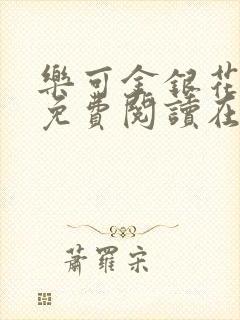 樂可金銀花
免費閱讀在
蕭羅宋